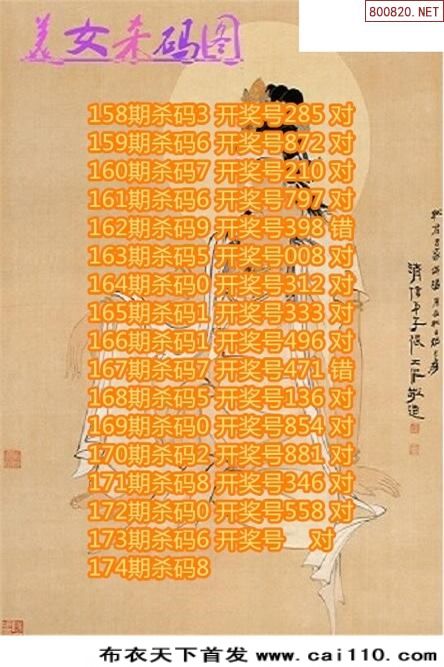 800820.NET
美女杀码图
158期杀码3 开奖号285 对
159期杀码6 开奖号872 对
160期杀码7 开奖号210 对
161期杀码6 开奖号797 对
162期杀码9 开奖号398 错
163期杀码5 开奖号008 对
164期杀码0 开奖号312 对
165期杀码1 开奖号333 对
166期杀码1 开奖号496 对
167期杀码7 开奖号471 错
168期杀码5 开奖号136 对
169期杀码0 开奖号854 对
170期杀码2 开奖号881 对
171期杀码8 开奖号346 对
172期杀码0 开奖号558 对
173期杀码6 开奖号 对
174期杀码8
布衣天下首发 www.cai110.com